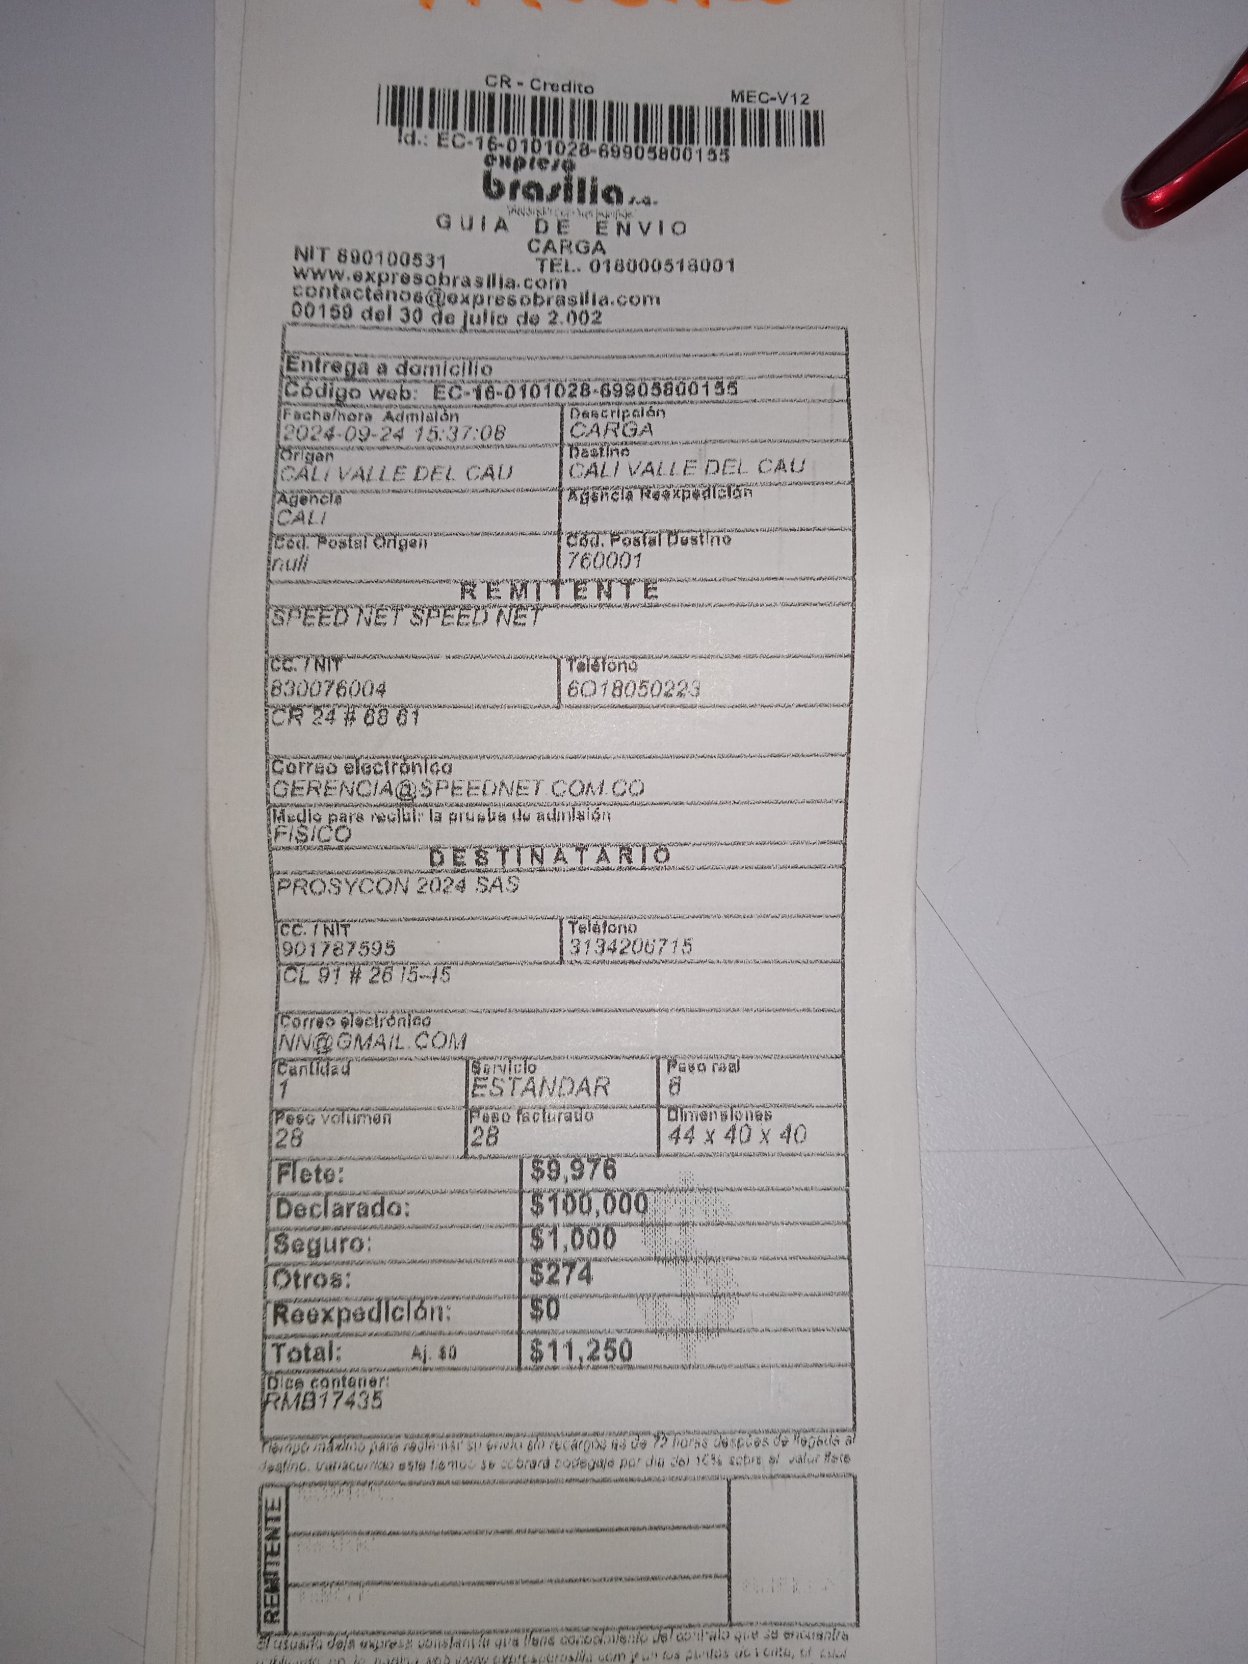 CR - Credito MEC-V12
Id.: EC-16-0101028-69905800155
expreso
brasilia s.a.
GUIA DE ENVIO
CARGA
NIT 890100531 TEL. 018000518001
www.expresobrasilia.com
contactenos@expresobrasilia.com
00159 del 30 de julio de 2.002
Entrega a domicilio
Código web: EC-16-0101028-69905800155
Fecha/hora Admisión Descripción
2024-09-24 15:37:08 CARGA
Origen Destino
CALI VALLE DEL CAU CALI VALLE DEL CAU
Agencia Agencia Reexpedición
CALI
Cód. Postal Origen Cód. Postal Destino
null 760001
REMITENTE
SPEED NET SPEED NET
CC. / NIT Teléfono
830076004 6O18050223
CR 24 # 68 61
Correo electrónico
GERENCIA@SPEEDNET.COM.CO
Medio para recibir la prueba de admisión
FISICO
DESTINATARIO
PROSYCON 2024 SAS
CC. / NIT Teléfono
901787595 3134206715
CL 91 # 26 I5-45
Correo electrónico
NN@GMAIL.COM
Cantidad Servicio Peso real
1 ESTANDAR 6
Peso volumen Peso facturado Dimensiones
28 28 44 x 40 x 40
Flete: $9,976
Declarado: $100,000
Seguro: $1,000
Otros: $274
Reexpedición: $0
Total: Aj. $0 $11,250
Dice contener:
RMB17435
Tiempo máximo para reclamar su envío sin recargos es de 72 horas después de llegada al
destino, transcurrido este tiempo se cobrará bodegaje por día del 10% sobre el valor flete
REMITENTE
El usuario deja expresa constancia que tiene conocimiento del contrato que se encuentra